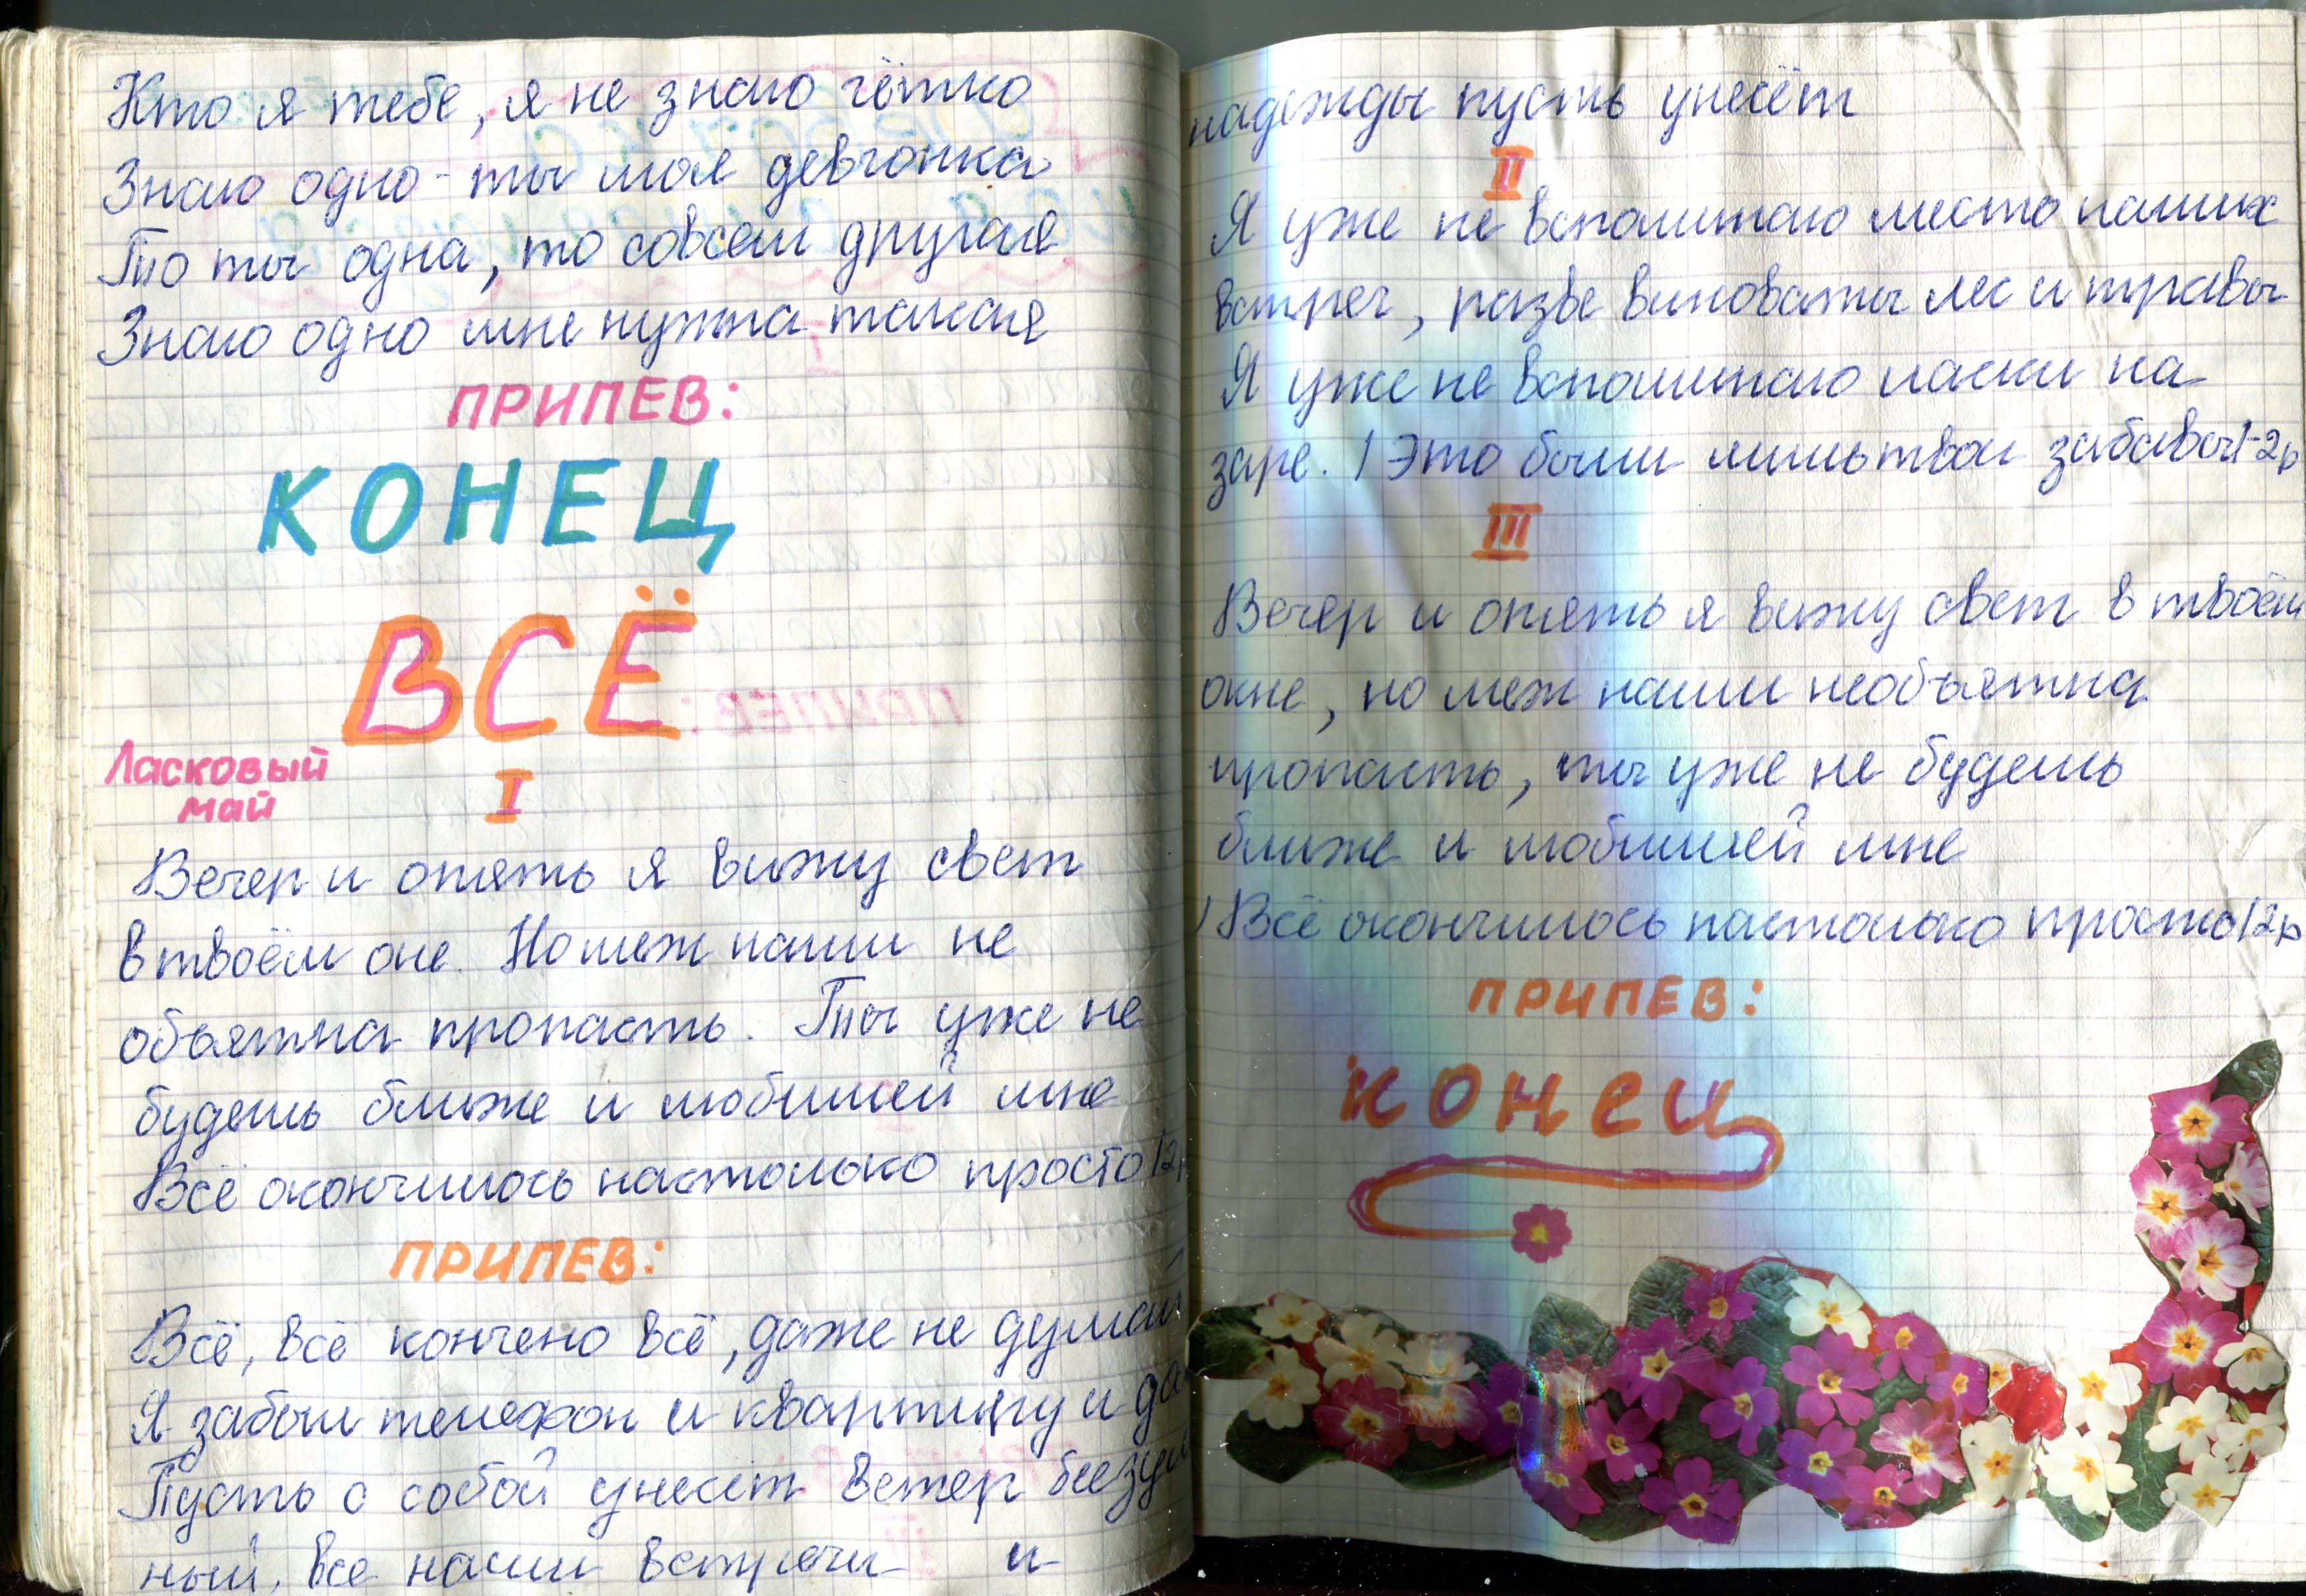 Кто я тебе, я не знаю чётко
Знаю одно - ты моя девчонка
То ты одна, то совсем другая
Знаю одно мне нужна такая
ПРИПЕВ:
КОНЕЦ
ВСЁ
Ласковый
май
I
Вечер и опять я вижу свет
в твоём оне. Но меж нами не
объятна пропасть. Ты уже не
будешь ближе и любимей мне
Всё окончилось настолько просто/2р
ПРИПЕВ:
Всё, всё кончено всё, даже не думай
Я забыл телефон и квартиру и да
Пусть с собой унесёт ветер безум
ный, все наши встречи и
надежды пусть унесёт
II
Я уже не вспоминаю место наших
встреч, разве виноваты лес и травы
Я уже не вспоминаю ласки на
заре. / Это были лишь твои забавы/-2р
III
Вечер и опять я вижу свет в твоём
окне, но меж нами необъятна
пропасть, ты уже не будешь
ближе и любимей мне
/ Всё окончилось настолько просто/2р
ПРИПЕВ:
конец